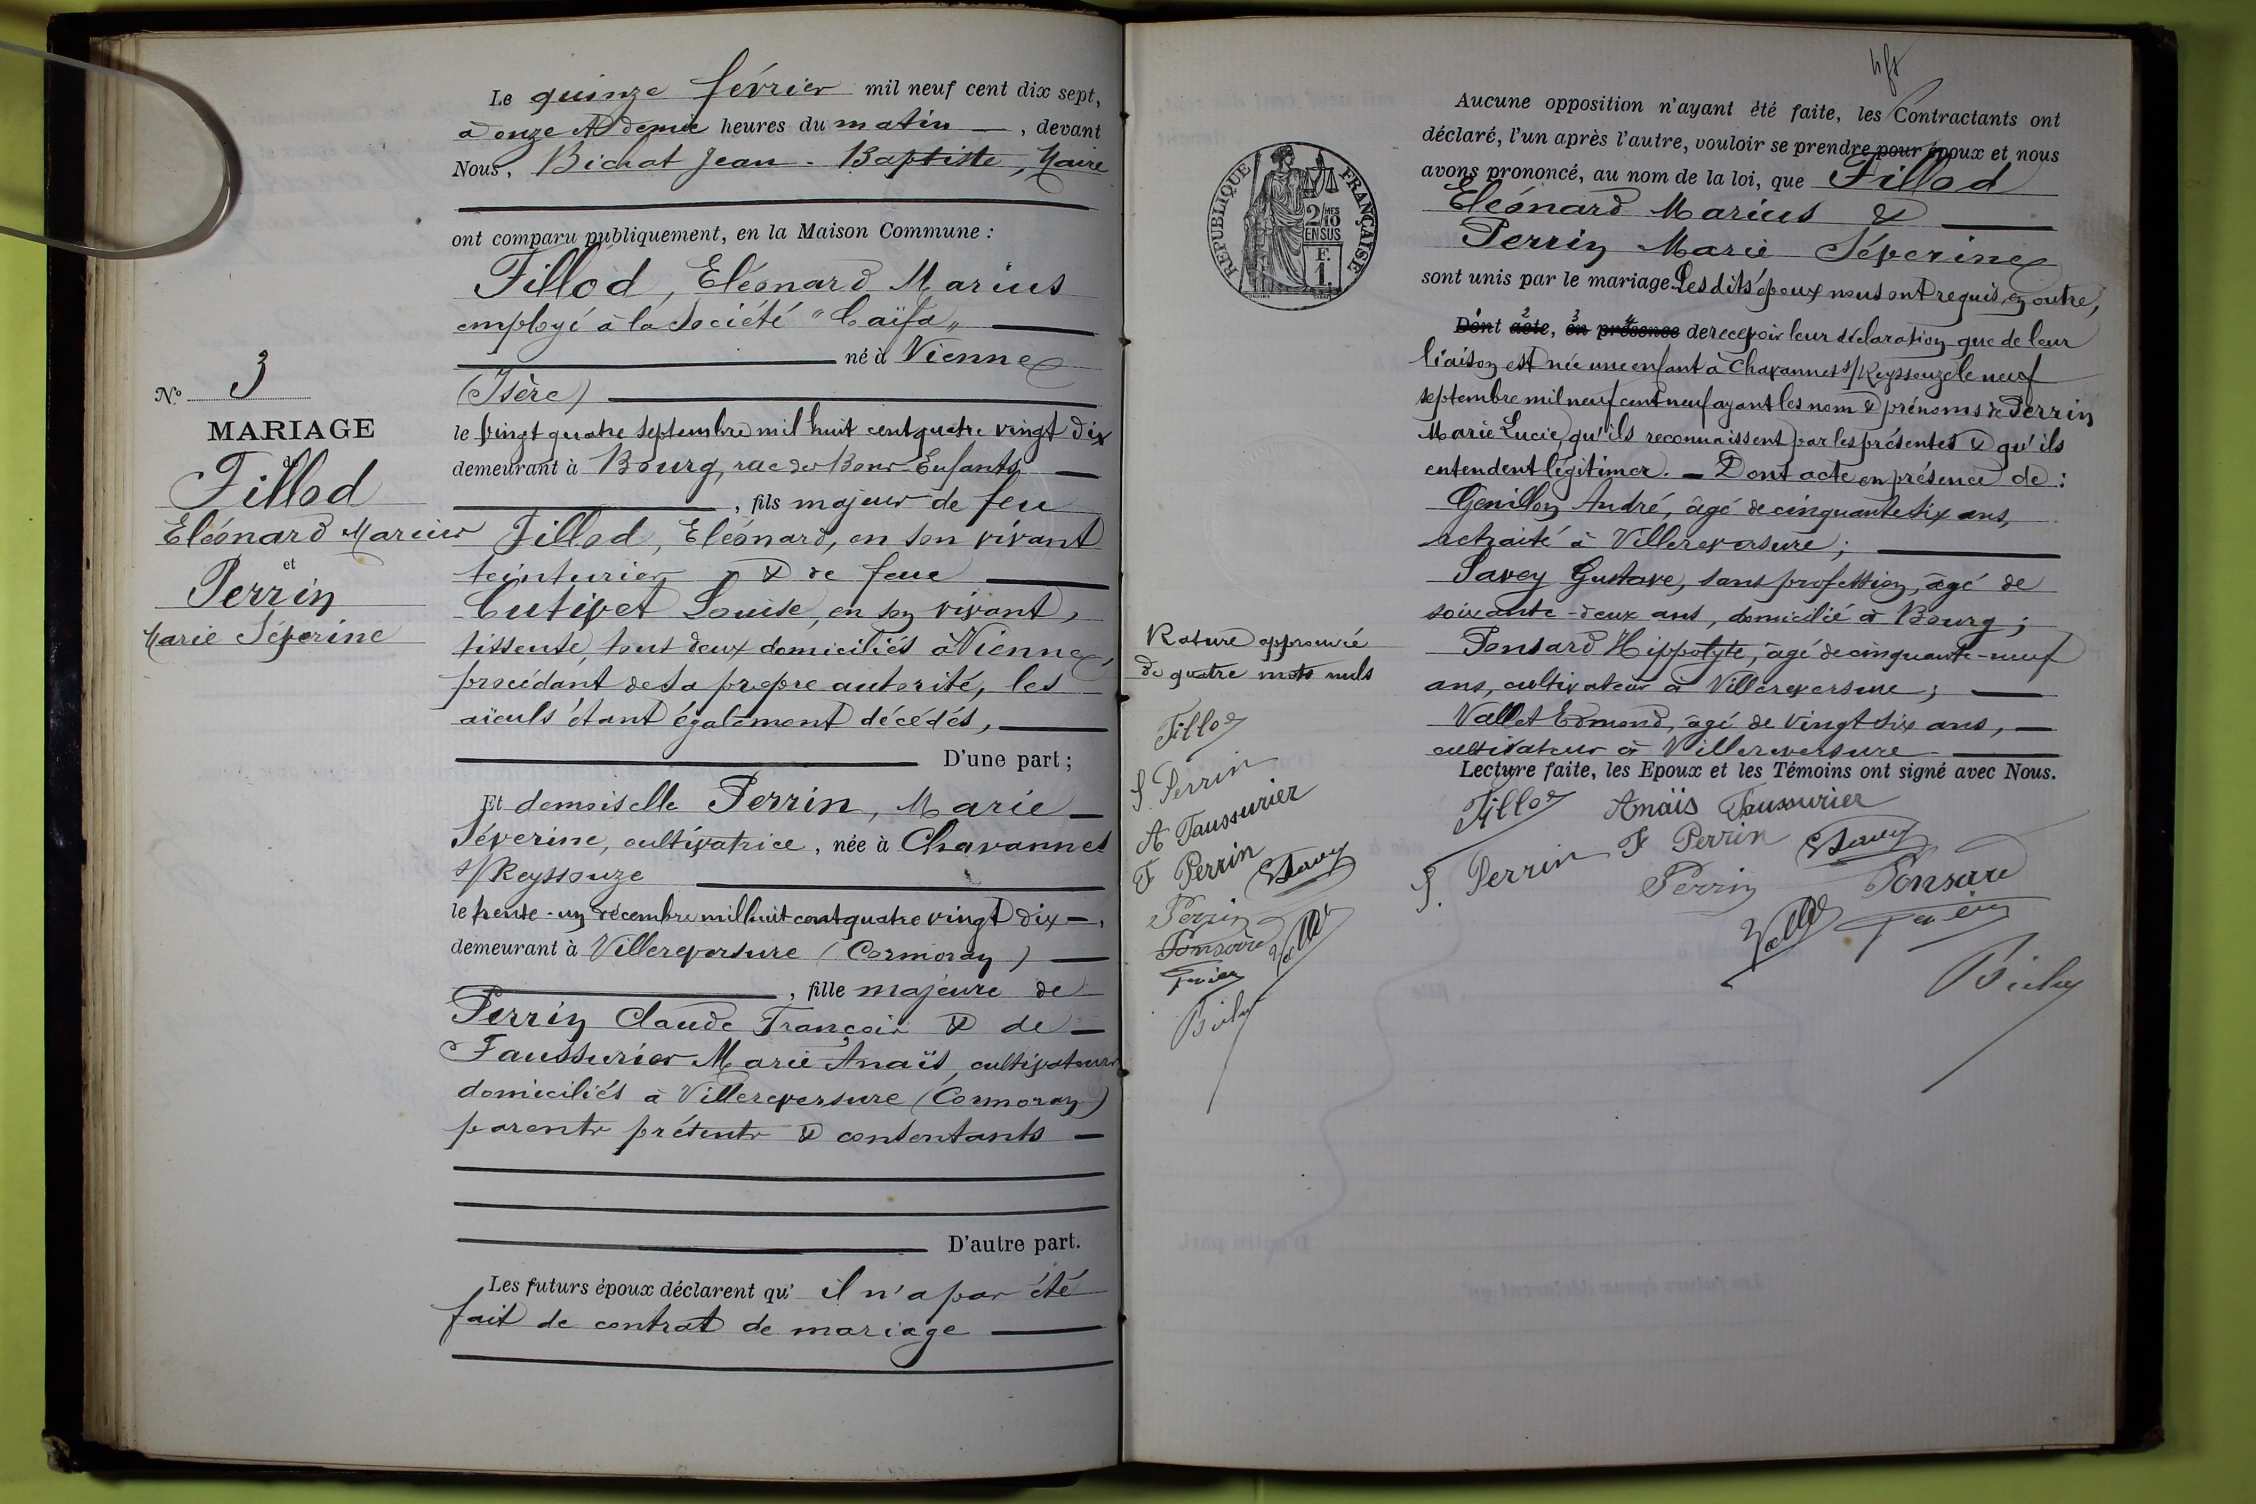 Le quinze février mil neuf cent dix sept,
à onze et demie heures du matin, devant
Nous, Bichat Jean-Baptiste, Maire
ont comparu publiquement, en la Maison Commune :
Fillod, Eléonard Marius
employé à la Société "Caïfa"
né à Vienne
(Isère)
le vingt quatre septembre mil huit cent quatre vingt dix
demeurant à Bourg, rue des Bons-Enfants
, fils majeur de feu
Fillod, Eléonard, en son vivant
teinturier & de feue
Cutivet Louise, en son vivant,
tisseuse, tous deux domiciliés à Vienne,
procédant de sa propre autorité, les
aïeuls étant également décédés,
D'une part ;
Et demoiselle Perrin, Marie
Séverine, cultivatrice, née à Chavannes
s/Reyssouze
le trente-un décembre mil huit cent quatre vingt dix,
demeurant à Villereversure (Cormoran)
, fille majeure de
Perrin Claude François & de
Faussurier Marie Anaïs, cultivateurs
domiciliés à Villereversure (Cormoran)
parents présents & consentants
D'autre part.
Les futurs époux déclarent qu' il n'a pas été
fait de contrat de mariage
N° 3
MARIAGE
Fillod
Eléonard Marius
et
Perrin
Marie Séverine
Aucune opposition n'ayant été faite, les Contractants ont
déclaré, l'un après l'autre, vouloir se prendre pour époux et nous
avons prononcé, au nom de la loi, que Fillod
Eléonard Marius &
Perrin Marie Séverine
sont unis par le mariage. Les dits époux nous ont requis, en outre,
1 2 3 4
Dont acte, en présence de recevoir leur déclaration que de leur
liaison est née une enfant à Chavannes s/Reyssouze le neuf
septembre mil neuf cent neuf ayant les nom & prénoms de Perrin
Marie Lucie, qu'ils reconnaissent par les présentes & qu'ils
entendent légitimer. - Dont acte en présence de :
Genillon André, âgé de cinquante six ans,
retraité à Villereversure ;
Savey Gustave, sans profession, âgé de
soixante-deux ans, domicilié à Bourg ;
Ponsard Hippolyte, âgé de cinquante-neuf
ans, cultivateur à Villereversure ;
Vallet Edmond, âgé de vingt six ans,
cultivateur à Villereversure
Lecture faite, les Epoux et les Témoins ont signé avec Nous.
Fillod Anaïs Faussurier
S. Perrin F Perrin Savey
Perrin Ponsard
Vallet
REPUBLIQUE FRANÇAISE
2/10 MES
EN SUS
F.
1.
Rature approuvée
de quatre mots nuls
Fillod
S. Perrin
A Faussurier
F Perrin
Savey
Perrin
Ponsard
Vallet